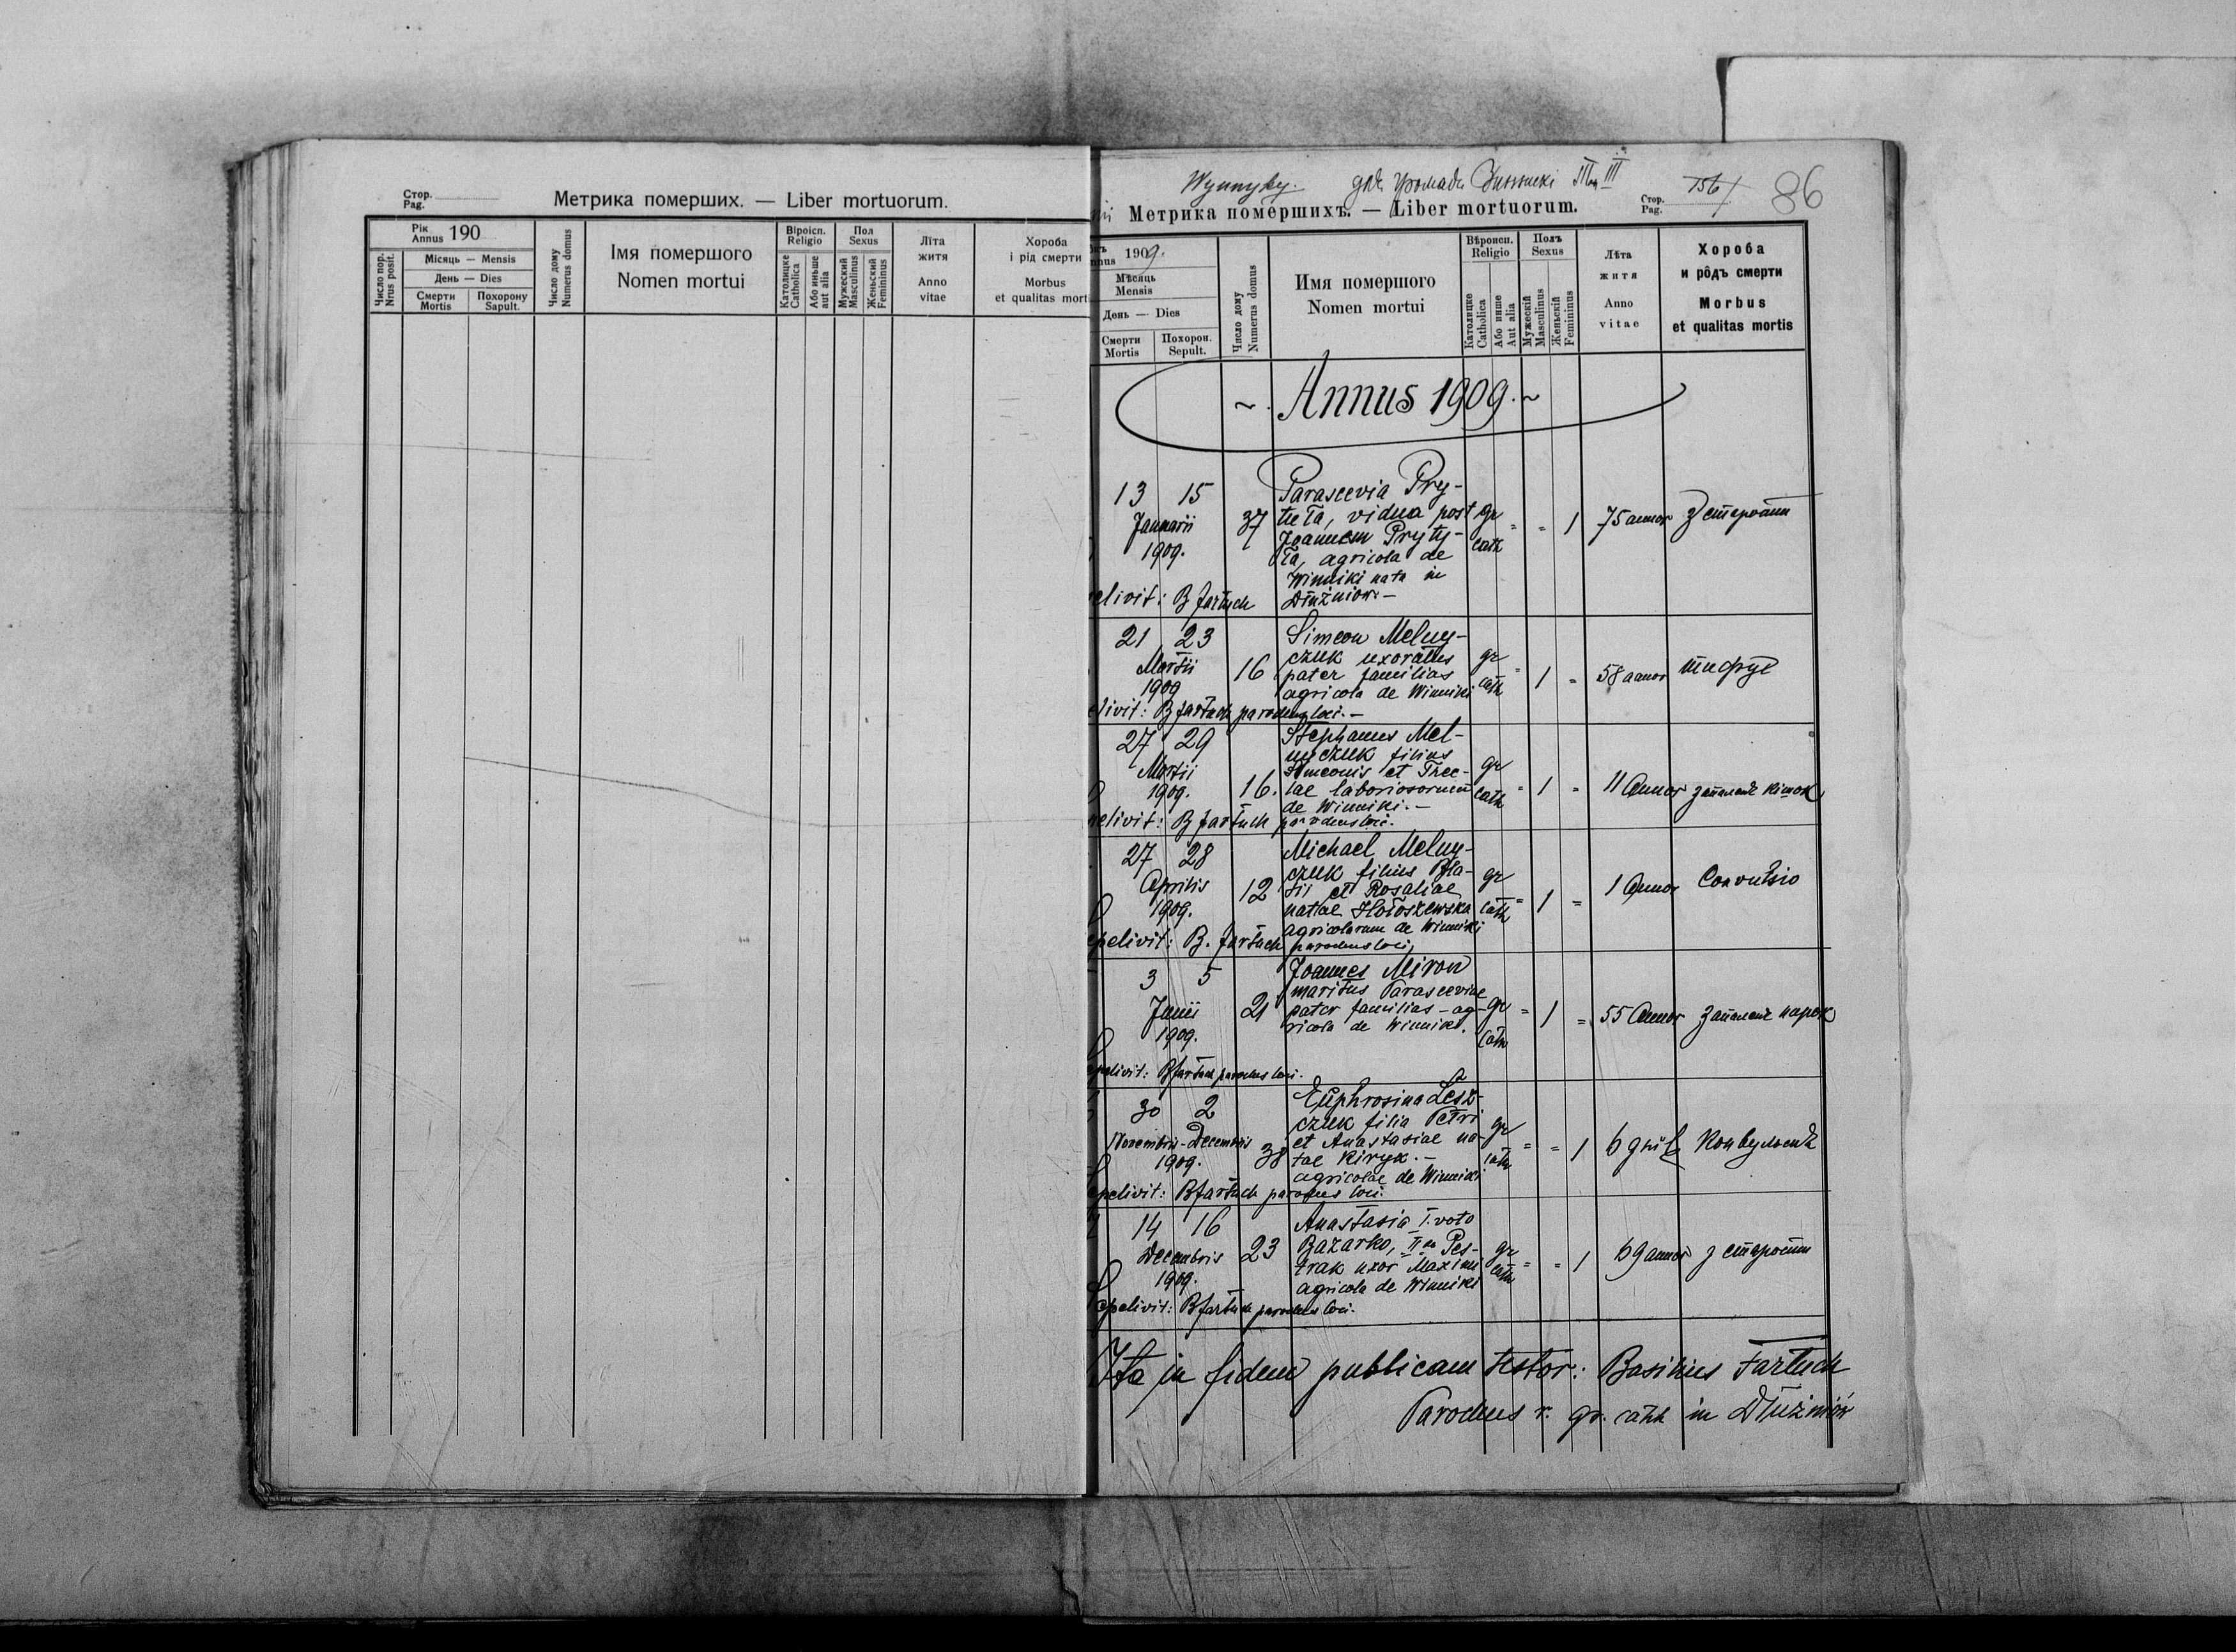 Стор.
Pag.
Метрика померших. — Liber mortuorum.
Число пор.
Nrus posit.
Рік
Annus 190
Місяць — Mensis
День — Dies
Смерти
Mortis
Похорону
Sapult.
Число дому
Numerus domus
Імя помершого
Nomen mortui
Віроісп.
Religio
Католицке
Catholica
Або иньше
aut alia
Пол
Sexus
Мужеский
Masculinus
Женьский
Femininus
Літа
житя
Anno
vitae
Хороба
і рід смерти
Morbus
et qualitas morti
Wynnyky. для громади Винники
Стор.
Pag. 156
86
Метрика помершихъ. — Liber mortuorum.
1909.
Мѣсяць
Mensis
День — Dies
Смерти
Mortis
Похорон.
Sepult.
Число дому
Numerus domus
Имя помершого
Nomen mortui
Вѣроисп.
Religio
Католицке
Catholica
Або инше
Aut alia
Полъ
Sexus
Мужескій
Masculinus
Женьскій
Femininus
Лѣта
житя
Anno
vitae
Хороба
и рôдъ смерти
Morbus
et qualitas mortis
~. Annus 1909. ~
13 15
Januarii
1909.
37
Parascevia Pry-
tuła, vidua post
Joannem Pryty-
ła, agricola de
Winniki nata in
Dłużniow. —
gr
cath
" " 1
75 annor
з старости
elivit: B Fartuch
21 23
Martii
1909
16
Simeon Melny-
czuk uxoratus
pater familias
agricola de Winniki
gr
cath
" 1 "
58 annor
тифус
elivit: B Fartuch parochus loci. —
27 29
Martii
1909.
16.
Stephanus Mel-
nyczuk filius
Simeonis et Thec-
lae laboriosorum
de Winniki. —
gr
cath
" 1 "
11 Annor
запаленє кишок
pelivit: B Fartuch parochus loci.
27 28
Aprilis
1909.
12
Michael Melny-
czuk filius Bla-
sii et Rosaliae
natae Hołoszewska
agricolarum de Winniki
gr
cath
" 1 "
1 Annor
Convulsio
epelivit: B. Fartuch parochus loci,
3 5
Junii
1909.
21
Joannes Miron
maritus Parasceviae
pater familias – ag-
ricola de Winniki.
gr
cath
" 1 "
55 Annor
запаленє нирок
epelivit: B Fartuch parochus loci.
30 2
Novembris-Decembris
1909.
38
Euphrosina Lesz-
czuk filia Petri
et Anastasiae na-
tae Kiryk. —
agricolae de Winniki
gr
cath
" " 1
6 днів
Конвульсиѣ
epelivit: B Fartuch parochus loci.
14 16
Decembris
1909.
23
Anastasia I. voto
Bazarko, II Pes-
trak uxor Maximi
agricola de Winniki
gr
cath
" " 1
69 annor
з старости
Sepelivit: B Fartuch parochus loci.
Ita in fidem publicam testor: Basilius Fartuch
Parochus r. gr. cath in Dłużniów